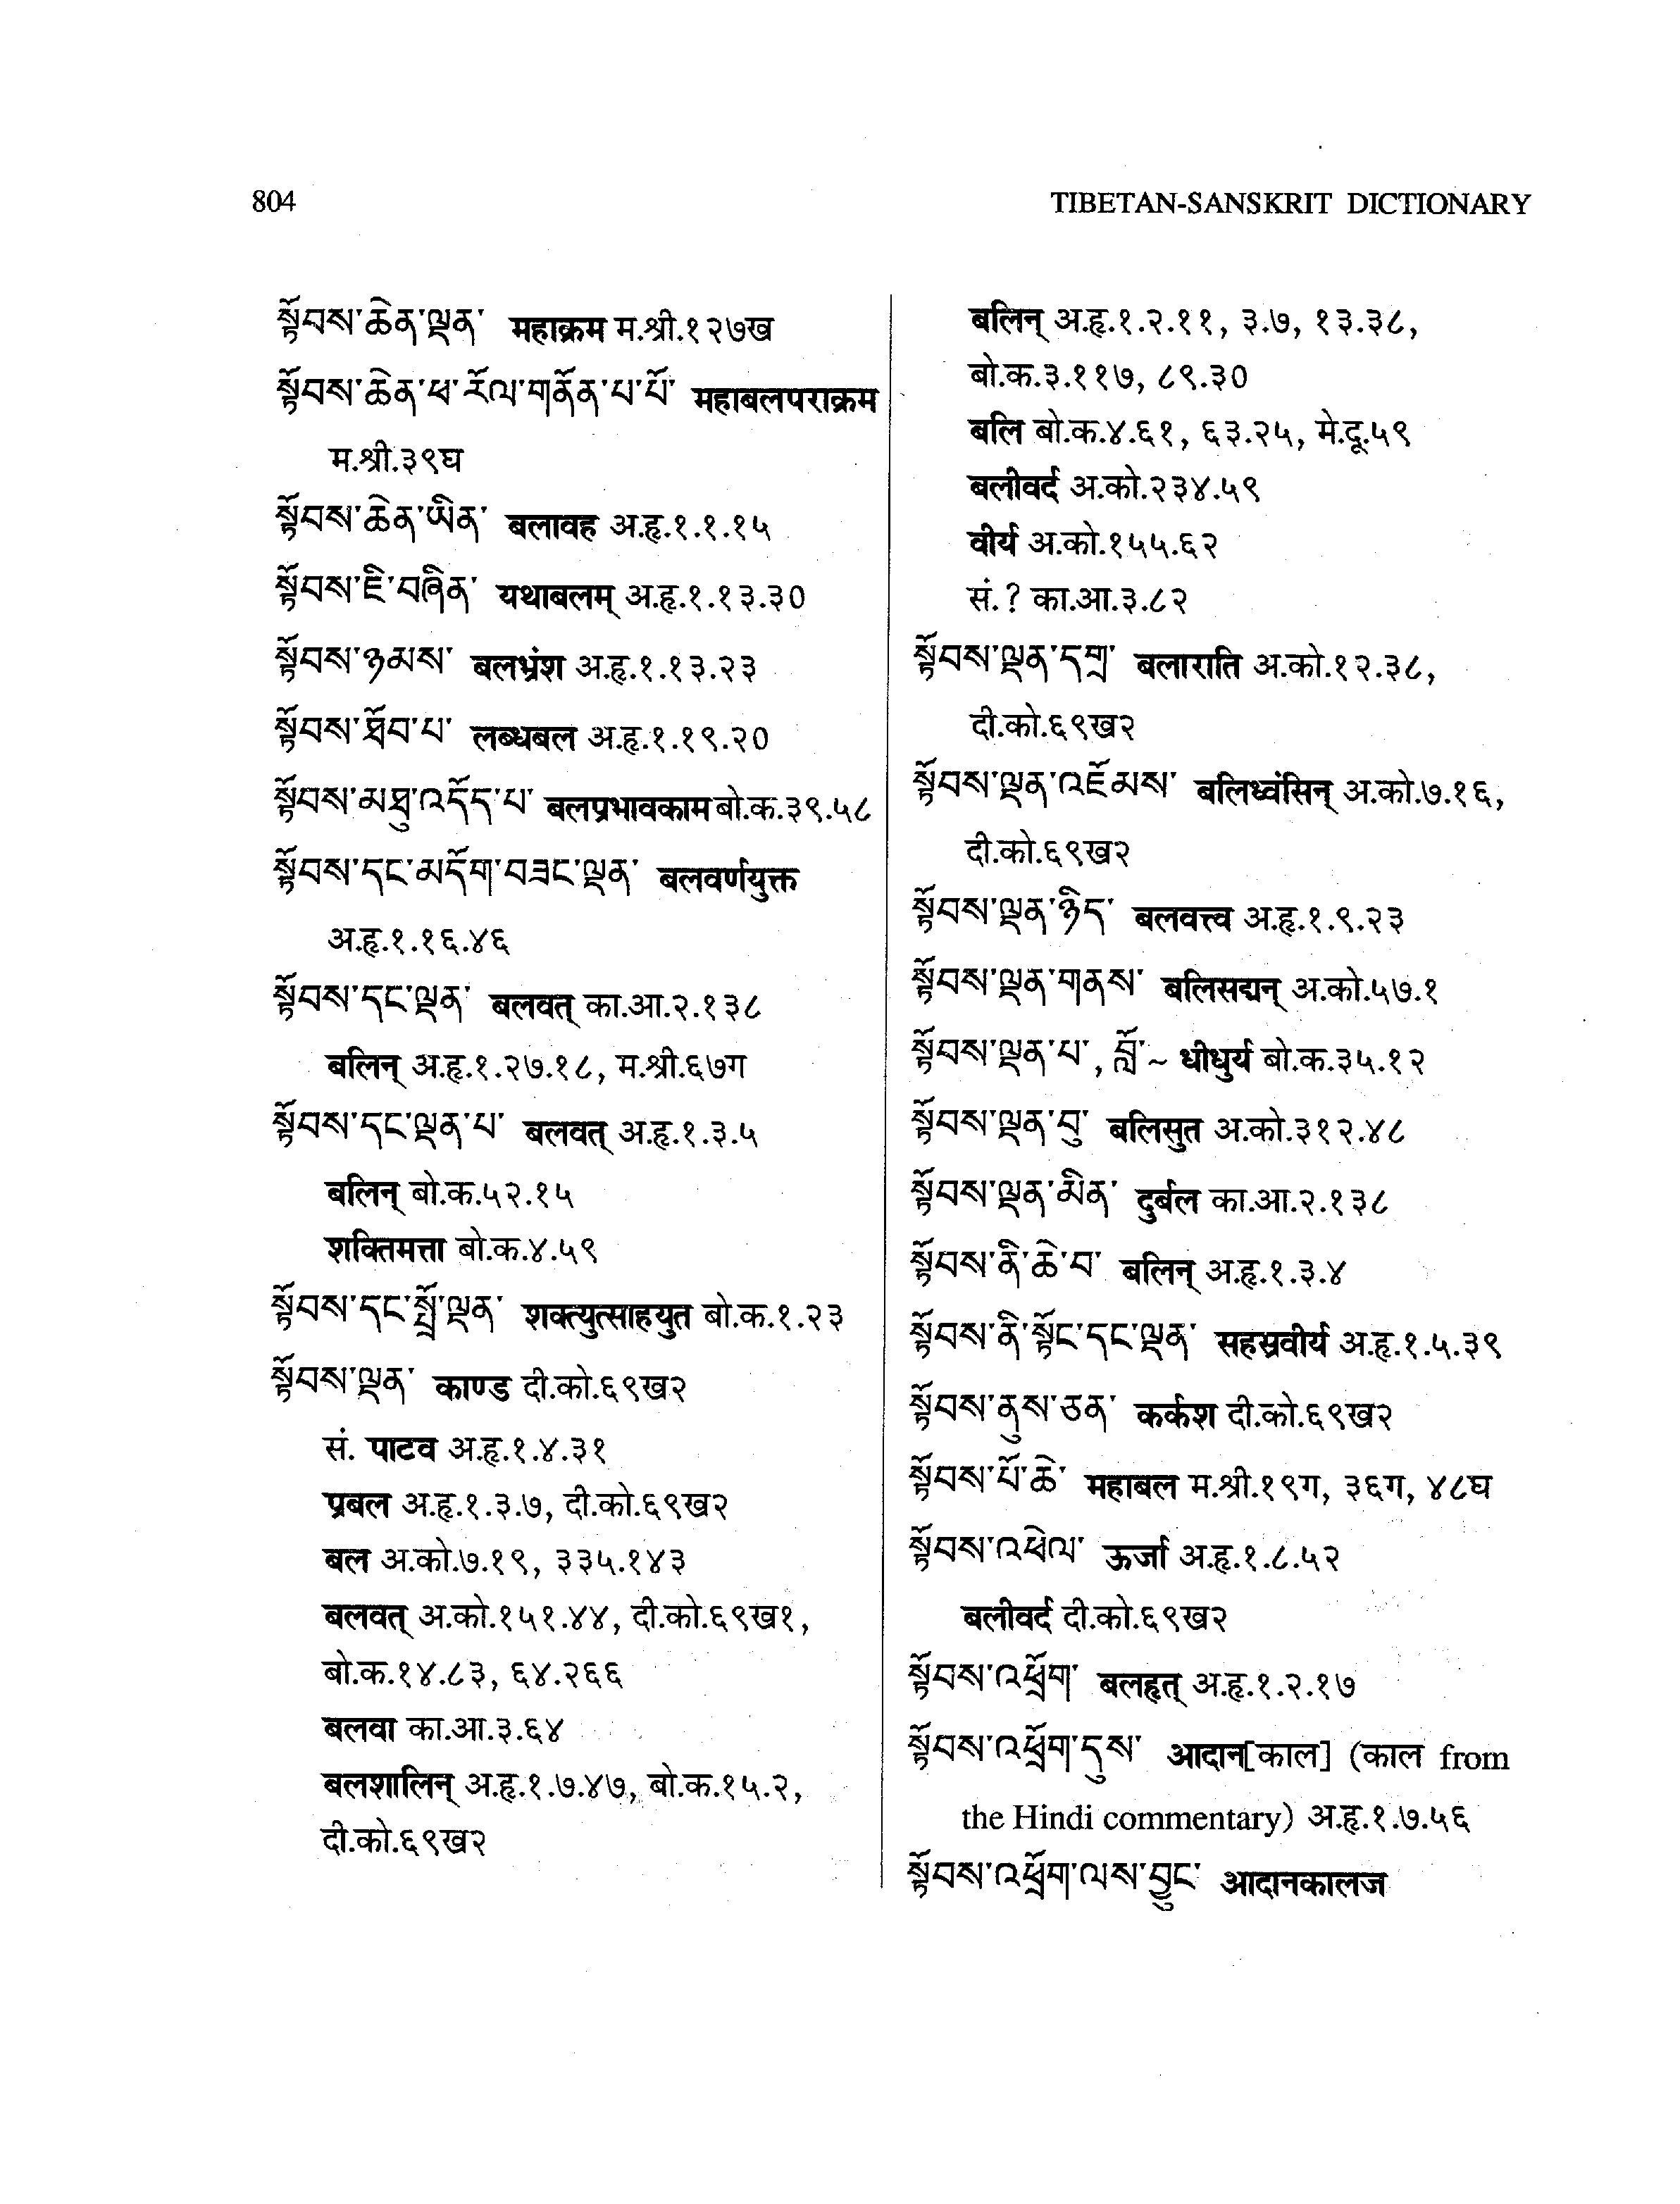 804
TIBETAN-SANSKRIT DICTIONARY
སྟོབས་ཆེན་ལྡན་ महाक्रम म.श्री.१२७ख
སྟོབས་ཆེན་ཕ་རོལ་གནོན་པ་པོ་ महाबलपराक्रम
म.श्री.३९घ
སྟོབས་ཆེན་ཡིན་ बलावह अ.हृ.१.१.१५
སྟོབས་ཇི་བཞིན་ यथाबलम् अ.हृ.१.१३.३०
སྟོབས་ཉམས་ बलभ्रंश अ.हृ.१.१३.२३
སྟོབས་ཐོབ་པ་ लब्धबल अ.हृ.१.१९.२०
སྟོབས་མཐུ་འདོད་པ་ बलप्रभावकाम बो.क.३९.५८
སྟོབས་དང་མདོག་བཟང་ལྡན་ बलवर्णयुक्त
अ.हृ.१.१६.४६
སྟོབས་དང་ལྡན་ बलवत् का.आ.२.१३८
बलिन् अ.हृ.१.२७.१८, म.श्री.६७ग
སྟོབས་དང་ལྡན་པ་ बलवत् अ.हृ.१.३.५
बलिन् बो.क.५२.१५
शक्तिमत्ता बो.क.४.५९
སྟོབས་དང་སྤྲོ་ལྡན་ शक्त्युत्साहयुत बो.क.१.२३
སྟོབས་ལྡན་ काण्ड दी.को.६९ख२
सं. पाटव अ.हृ.१.४.३१
प्रबल अ.हृ.१.३.७, दी.को.६९ख२
बल अ.को.७.१९, ३३५.१४३
बलवत् अ.को.१५१.४४, दी.को.६९ख१,
बो.क.१४.८३, ६४.२६६
बलवा का.आ.३.६४
बलशालिन् अ.हृ.१.७.४७, बो.क.१५.२,
दी.को.६९ख२
बलिन् अ.हृ.१.२.११, ३.७, १३.३८,
बो.क.३.११७, ८९.३०
बलि बो.क.४.६१, ६३.२५, मे.दू.५९
बलीवर्द अ.को.२३४.५९
वीर्य अ.को.१५५.६२
सं. ? का.आ.३.८२
སྟོབས་ལྡན་དགྲ་ बलाराति अ.को.१२.३८,
दी.को.६९ख२
སྟོབས་ལྡན་འཇོམས་ बलिध्वंसिन् अ.को.७.१६,
दी.को.६९ख२
སྟོབས་ལྡན་ཉིད་ बलवत्त्व अ.हृ.१.९.२३
སྟོབས་ལྡན་གནས་ बलिसद्मन् अ.को.५७.१
སྟོབས་ལྡན་པ་, བློ་~ धीधुर्य बो.क.३५.१२
སྟོབས་ལྡན་བུ་ बलिसुत अ.को.३१२.४८
སྟོབས་ལྡན་མིན་ दुर्बल का.आ.२.१३८
སྟོབས་ནི་ཆེ་བ་ बलिन् अ.हृ.१.३.४
སྟོབས་ནི་སྟོང་དང་ལྡན་ सहस्रवीर्य अ.हृ.१.५.३९
སྟོབས་ནུས་ཅན་ कर्कश दी.को.६९ख२
སྟོབས་པོ་ཆེ་ महाबल म.श्री.१९ग, ३६ग, ४८घ
སྟོབས་འཕེལ་ ऊर्जा अ.हृ.१.८.५२
बलीवर्द दी.को.६९ख२
སྟོབས་འཕྲོག་ बलहृत् अ.हृ.१.२.१७
སྟོབས་འཕྲོག་དུས་ आदान[काल] (काल from
the Hindi commentary) अ.हृ.१.७.५६
སྟོབས་འཕྲོག་ལས་བྱུང་ आदानकालज